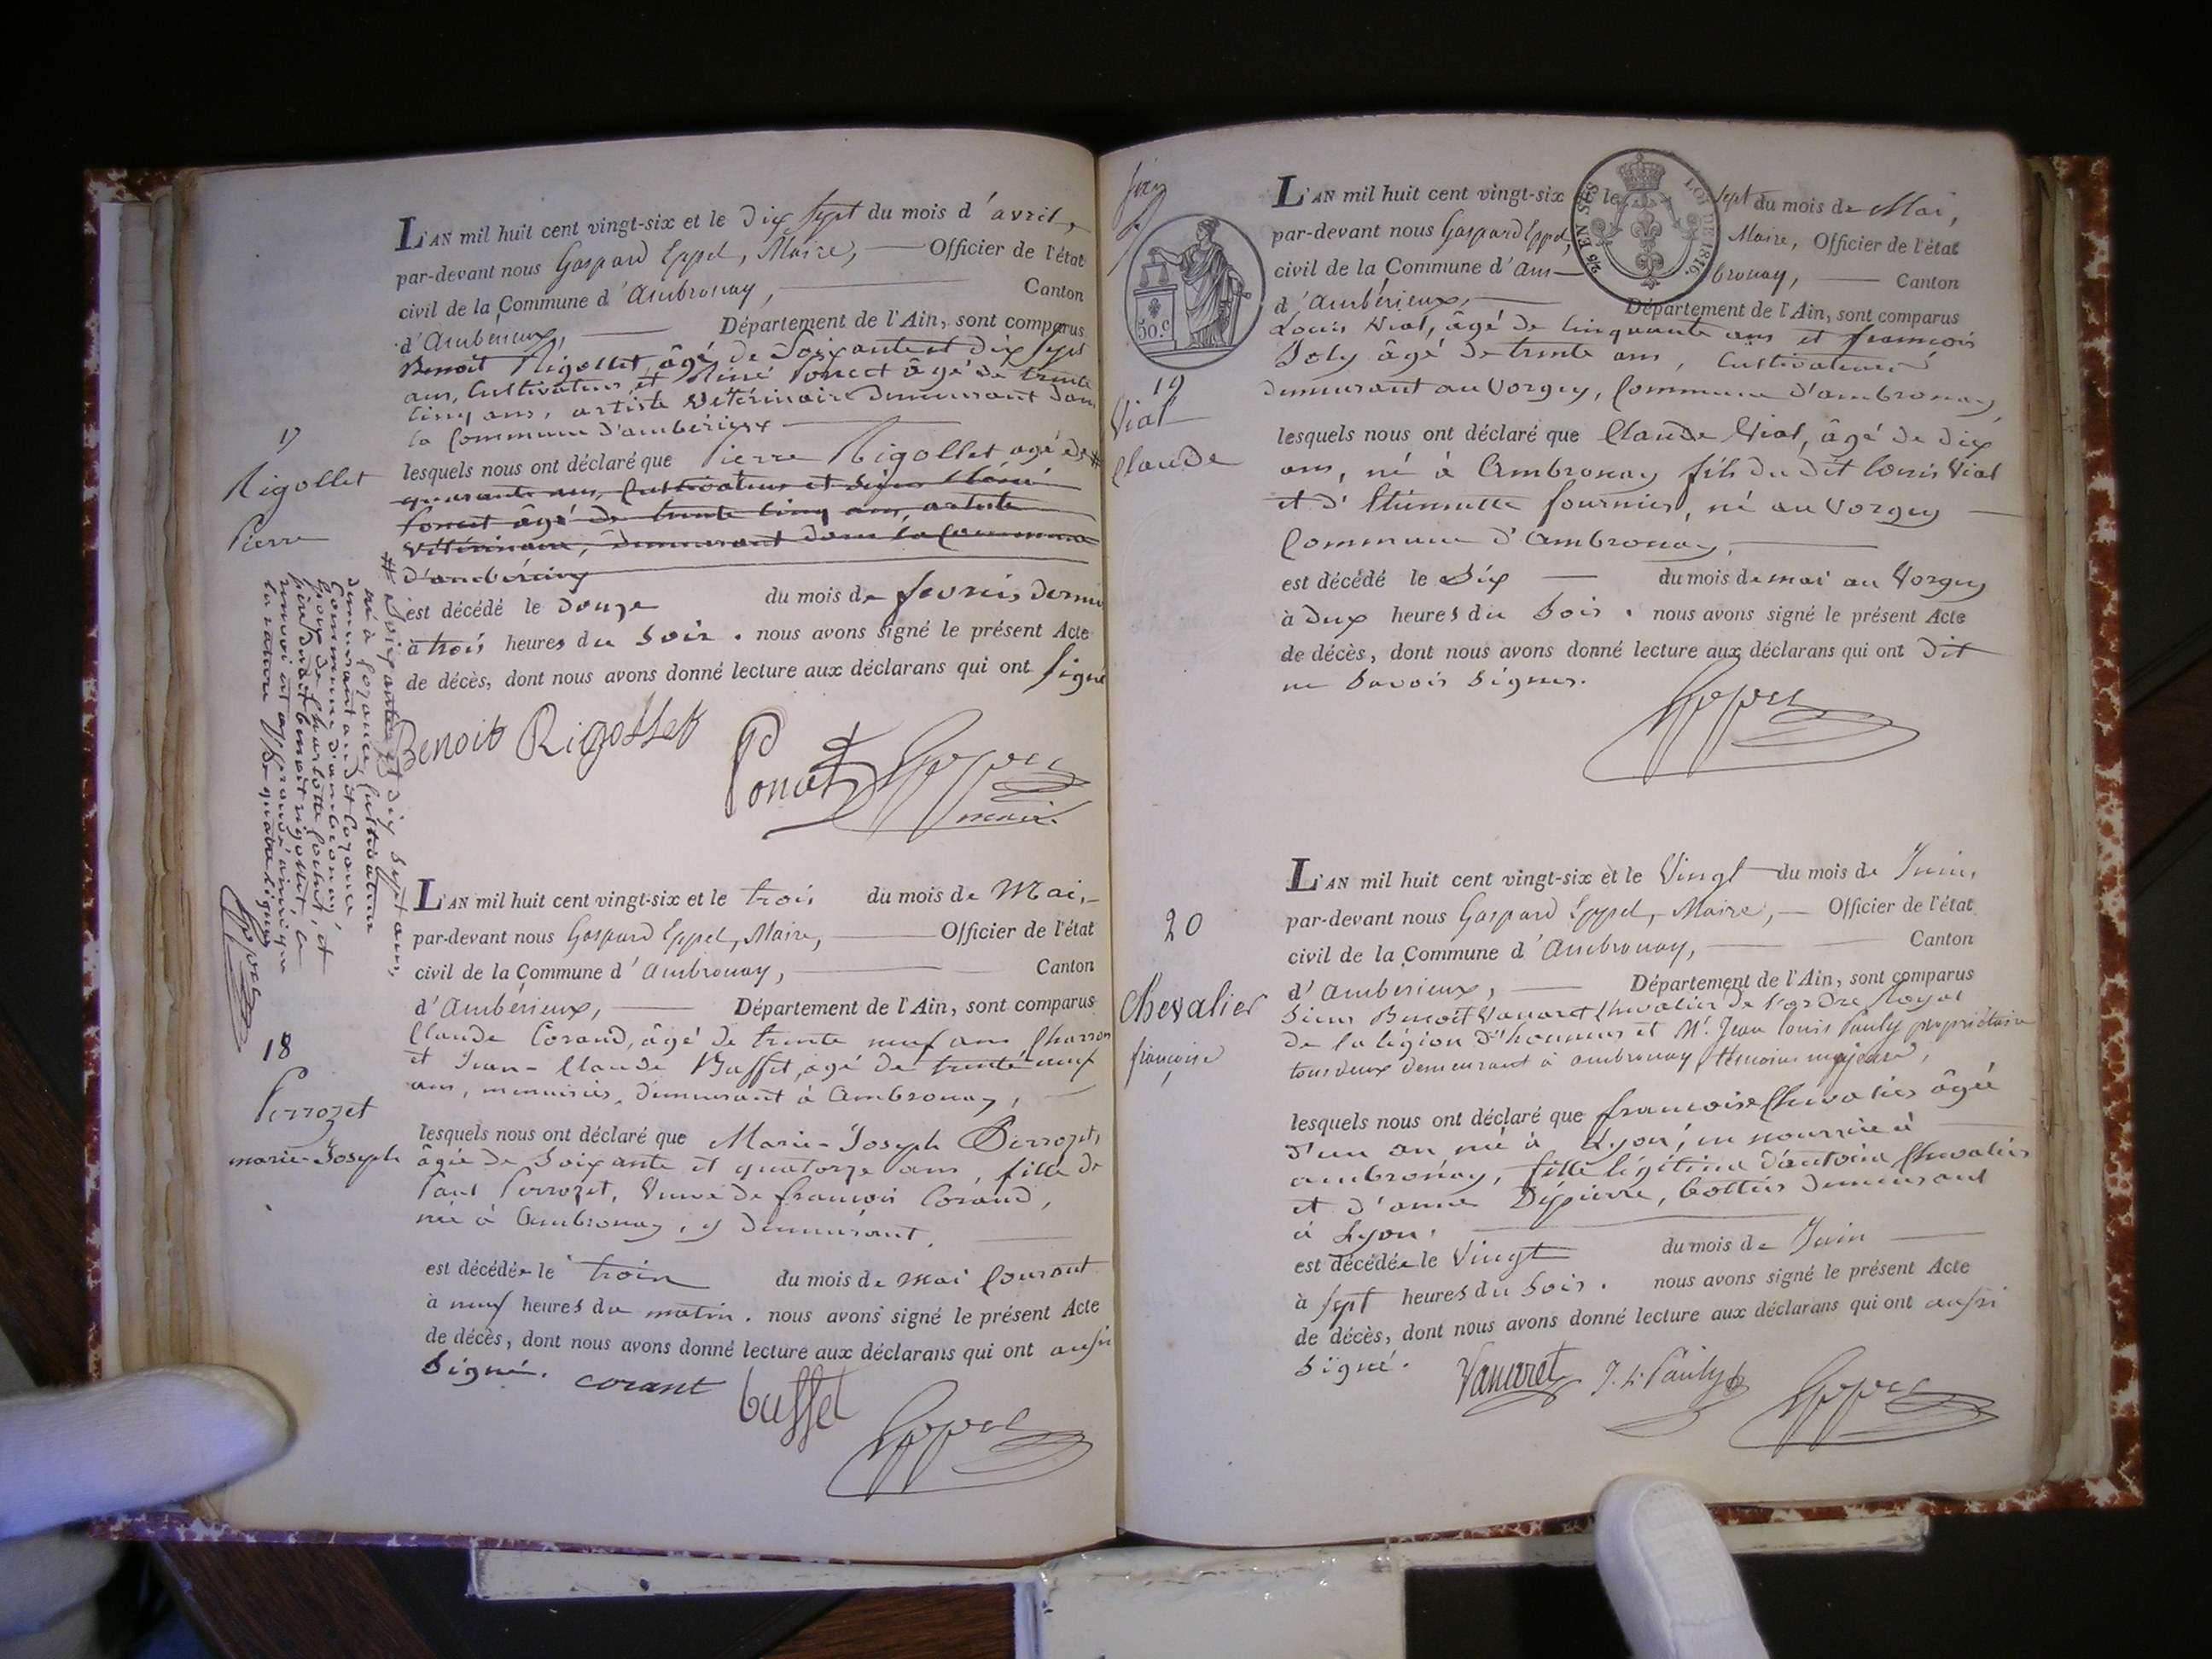 L'AN mil huit cent vingt-six et le dix sept du mois d'avril,
par-devant nous Gaspard Eppel, Maire, Officier de l'état
civil de la Commune d'Ambronay, Canton
d'Ambérieux, Département de l'Ain, sont comparus
Benoit Rigollet, âgé de Soixante et dix sept
ans, Cultivateur et Réné Poncet âgé de trente
cinq ans, artiste Vétérinaire demeurant dans
la Commune d'ambérieux
17
Rigollet
Pierre
lesquels nous ont déclaré que Pierre Rigollet agé de #
quarante ans, Cultivateur et Sieur Réné
Poncet âgé de trente cinq ans, artiste
Vétérinaire, demeurant dans la Commune
d'ambérieux
est décédé le douze du mois de fevrier dernier
à trois heures du Soir. nous avons signé le présent Acte
de décès, dont nous avons donné lecture aux déclarans qui ont signé
# Soixante et dix Sept ans,
né à Coronce, Cultivateur
demeurant au dit Coronce
Commune d'ambronay,
Epoux de Charlotte, et
frère du dit benoit rigollet, ce
renvoi est approuvé ainsi que
la rature de quatre lignes
Eppel
Benoit Rigollet
Poncet
Eppel
maire
L'AN mil huit cent vingt-six et le trois du mois de Mai,
par-devant nous Gaspard Eppel, Maire, Officier de l'état
civil de la Commune d'Ambronay, Canton
d'Ambérieux, Département de l'Ain, sont comparus
Claude Corand, âgé de trente neuf ans Charron
et Jean-Claude Buffet, agé de trente neuf
ans, menuisier, demeurant à Ambronay,
18
Perrozet
marie-Joseph
lesquels nous ont déclaré que Marie-Joseph Perrozet,
âgée de Soixante et quatorze ans, fille de
Paul Perrozet, Veuve de francois Corand,
née à Ambronay, y demeurant.
est décédée le trois du mois de mai Courant
à neuf heures du matin. nous avons signé le présent Acte
de décès, dont nous avons donné lecture aux déclarans qui ont aussi
Signé. corant
buffet
Eppel
50.c
L'AN mil huit cent vingt-six et le Sept du mois de Mai,
par-devant nous Gaspard Eppel, Maire, Officier de l'état
civil de la Commune d'Ambronay, Canton
d'Ambérieux, Département de l'Ain, sont comparus
EN SUS
LOI DE 1816.
Louis Vial, âgé de Cinquante ans et francois
Joly âgé de trente ans, Cultivateurs
demeurant au Vorgey, Commune d'ambronay
19
Vial
Claude
lesquels nous ont déclaré que Claude Vial, âgé de dix
ans, né à Ambronay fils du dit Louis Vial
et d'Etiennette fournier, né au Vorgey
Commune d'Ambronay,
est décédé le Six du mois de mai au Vorgey
à deux heures du Soir. nous avons signé le présent Acte
de décès, dont nous avons donné lecture aux déclarans qui ont dit
ne Savoir Signer.
Eppel
L'AN mil huit cent vingt-six et le Vingt du mois de Juin,
par-devant nous Gaspard Eppel, Maire, Officier de l'état
civil de la Commune d'Ambronay, Canton
d'Ambérieux, Département de l'Ain, sont comparus
Sieur Benoit Vanaret Chevalier de l'ordre Royal
de la légion d'honneur et Mr. Jean Louis Pauly propriétaire
tous deux demeurant à ambronay témoins majeurs,
20
Chevalier
françoise
lesquels nous ont déclaré que francoise Chevalier âgée
d'un an, née à Lyon, en nourrice à
ambronay, fille légitime d'antoine Chevalier
et d'anne Dépierre, bottier demeurant
à Lyon.
est décédée le Vingt du mois de Juin
à Sept heures du Soir. nous avons signé le présent Acte
de décès, dont nous avons donné lecture aux déclarans qui ont aussi
Signé.
Vanaret J. L. Pauly
Eppel